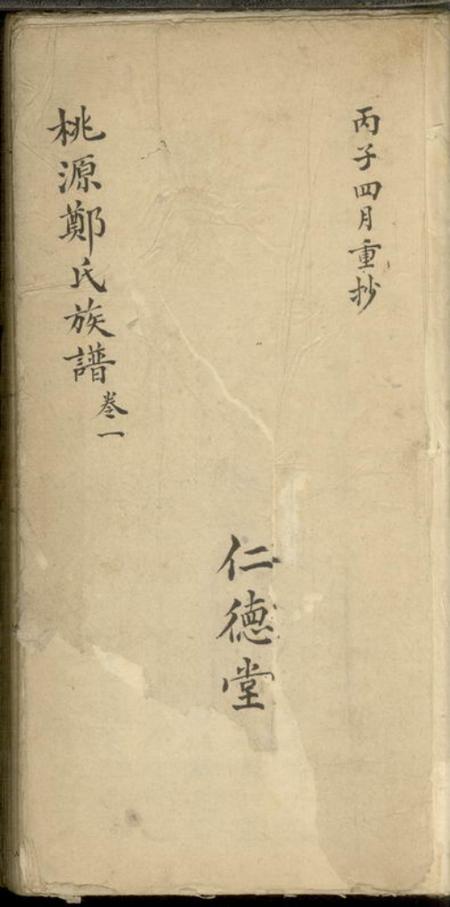 丙子四月重抄
仁德堂
桃源鄭氏族譜卷一